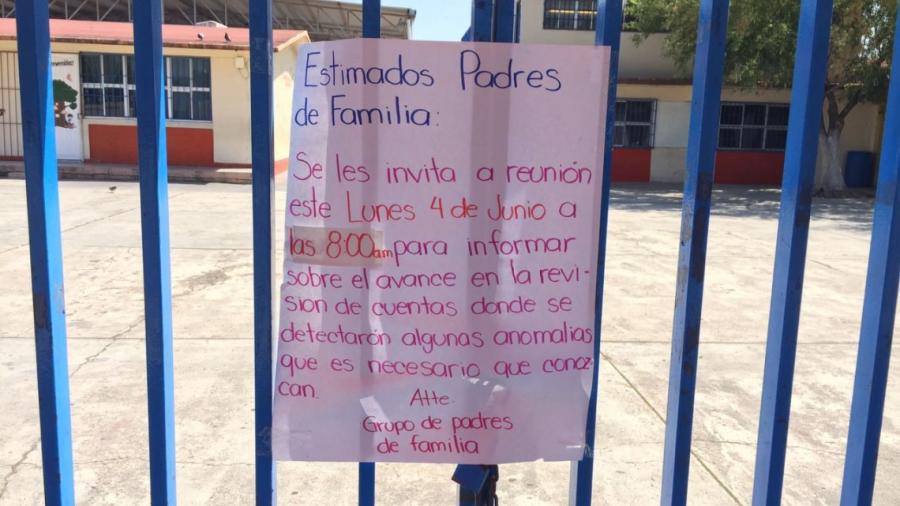 Estimados Padres
de Familia:
Se les invita a reunión
este Lunes 4 de Junio a
las 8:00am para informar
sobre el avance en la revi-
sion de cuentas donde se
detectarón algunas anomalias
que es necesario que conoz-
can.
Atte.
Grupo de padres
de familia